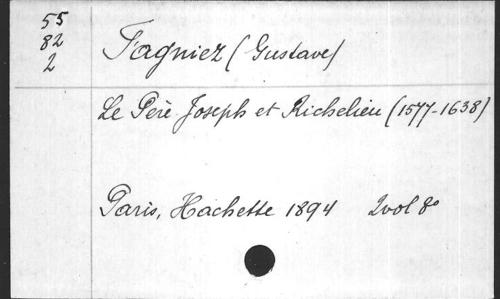 55
82
2
Fagniez (Gustave)
Le Père Joseph et Richelieu (1577-1638)
Paris, Hachette 1894 2 vol 8º